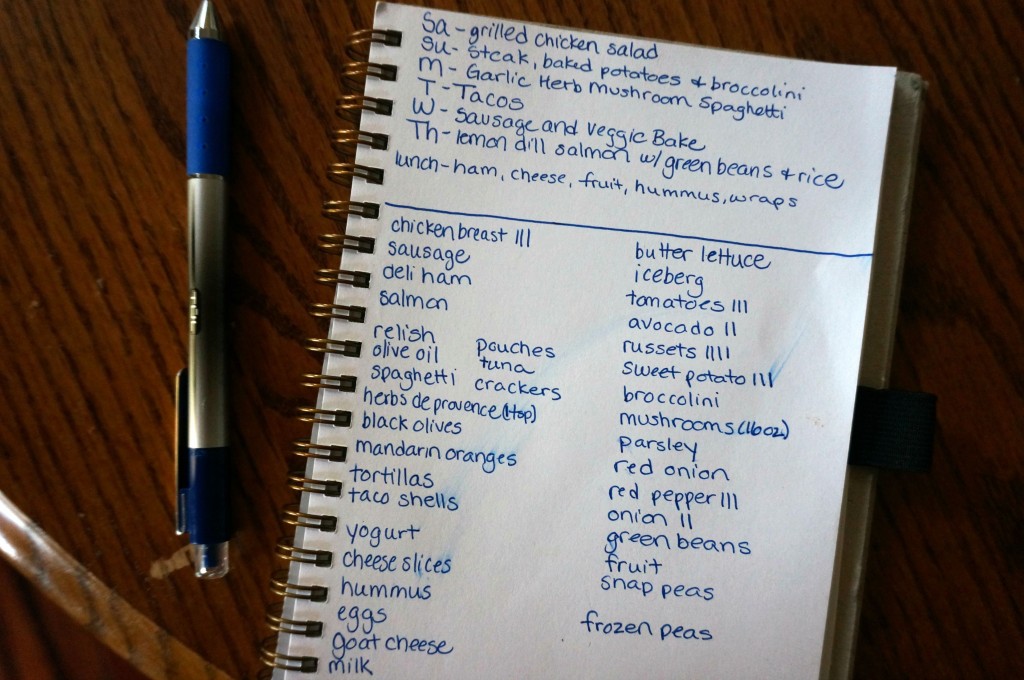 Sa - grilled chicken salad
Su - Steak, baked potatoes & broccolini
M - Garlic Herb Mushroom Spaghetti
T - Tacos
W - Sausage and Veggie Bake
Th - lemon dill salmon w/ green beans & rice
lunch - ham, cheese, fruit, hummus, wraps
chicken breast III
sausage
deli ham
salmon
relish
olive oil
spaghetti
herbs de provence (1tsp)
black olives
mandarin oranges
tortillas
taco shells
yogurt
cheese slices
hummus
eggs
goat cheese
milk
pouches
tuna
crackers
butter lettuce
iceberg
tomatoes III
avocado II
russets IIII
sweet potato III
broccolini
mushrooms (16oz)
parsley
red onion
red pepper III
onion II
green beans
fruit
snap peas
frozen peas